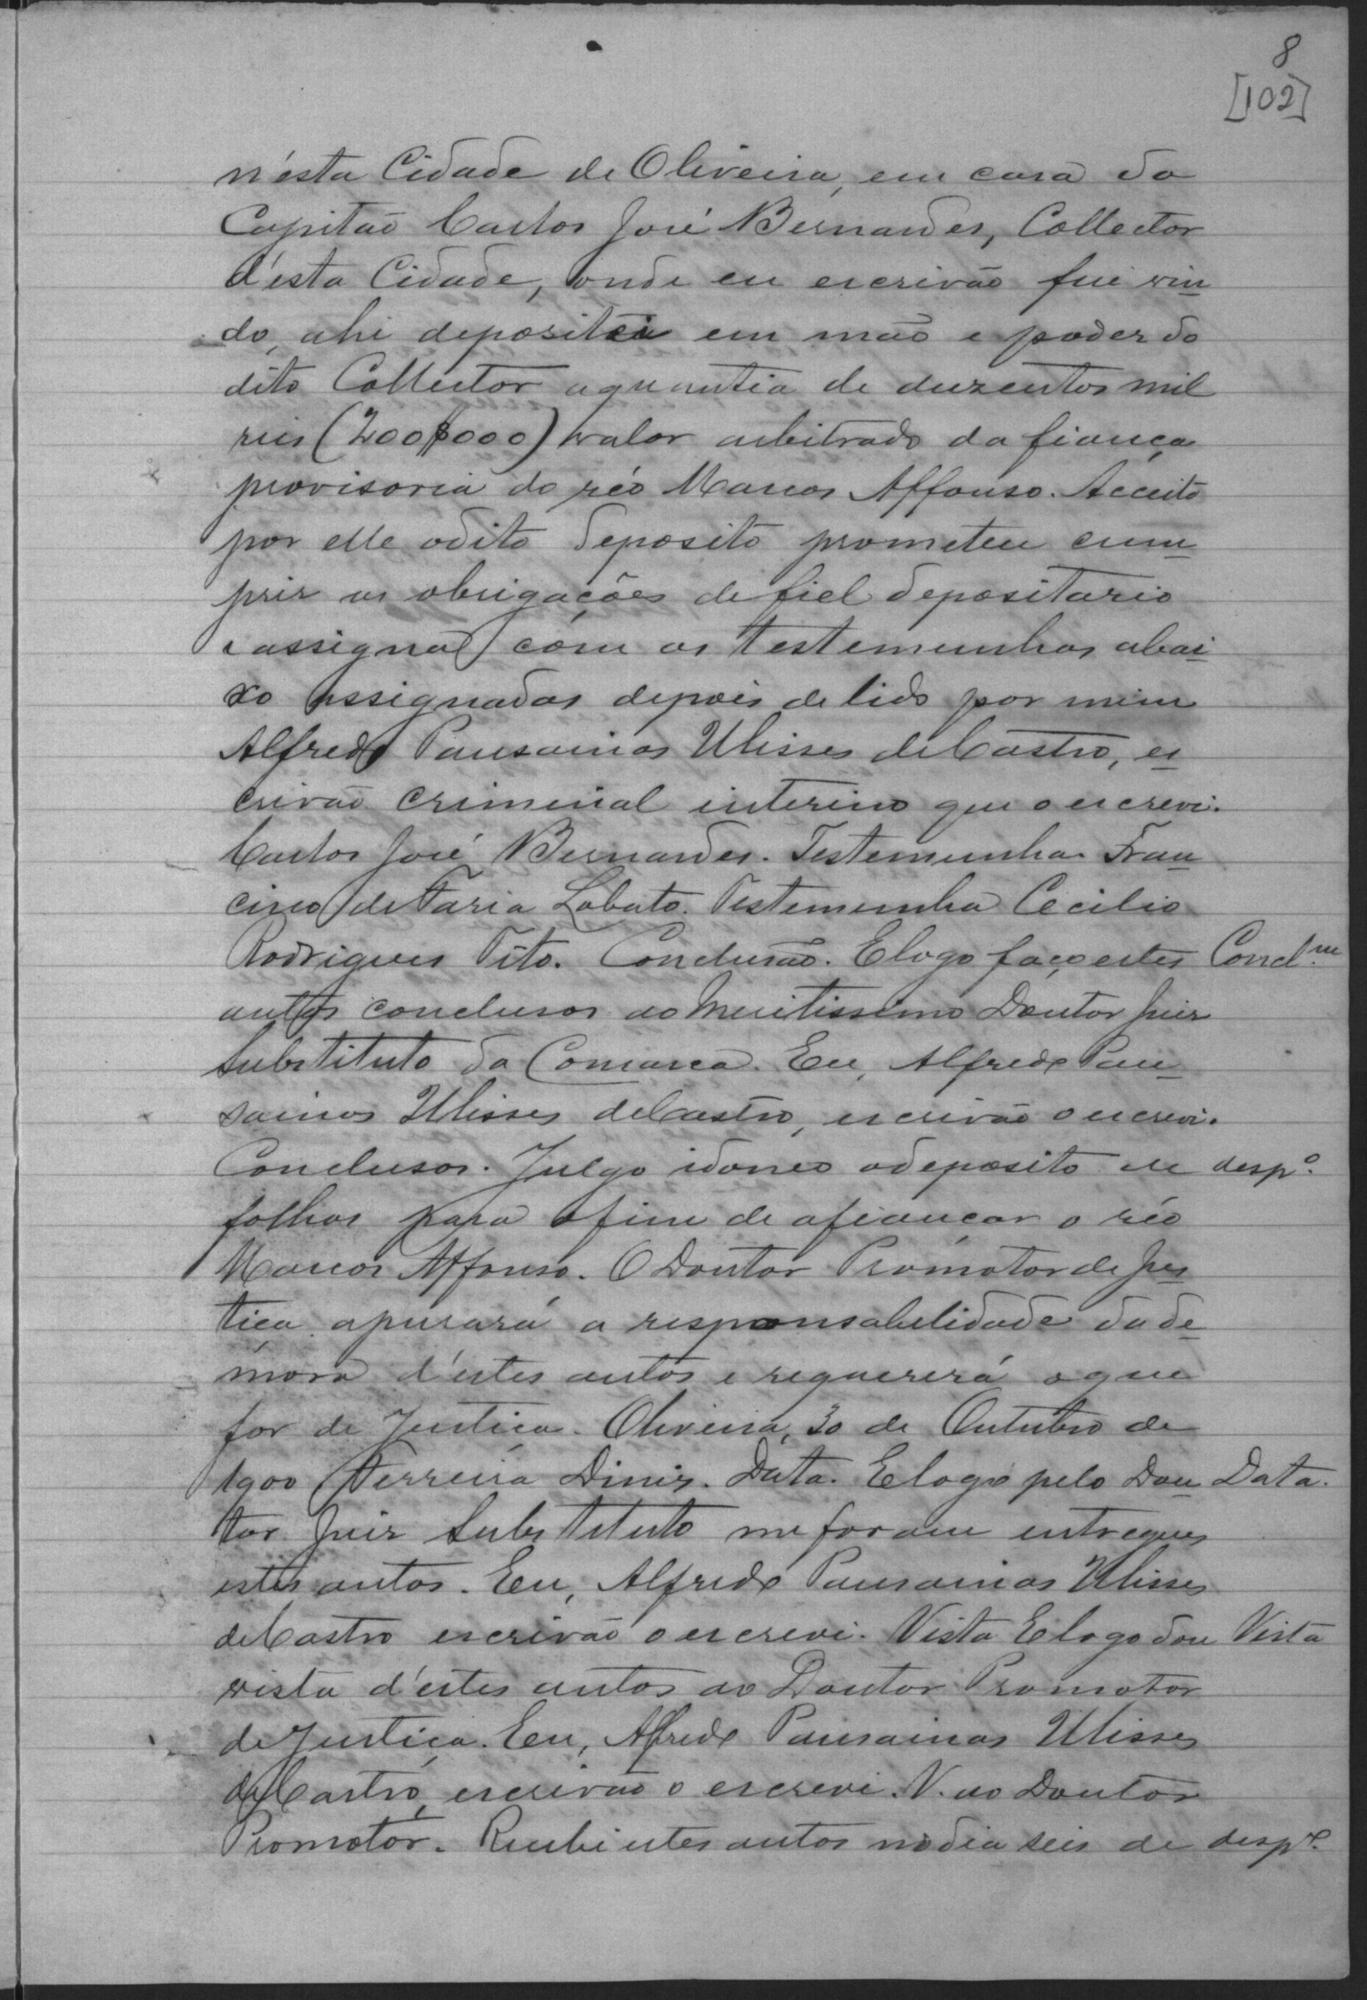 8
[102]
n'ésta Cidade de Oliveira, em casa do
Capitão Carlos José Bernardes, Collector
d'ésta Cidade, onde eu escrivão fui vin-
do, ahi depositei em mão e poder do
dito Collector a quantia de duzentos mil
reis (200$000) valor arbitrado da fiança
provisoria do réo Marcos Affonso. Acceito
por elle o dito deposito prometteu cum-
prir as obrigações de fiel depositario
e assigna com as testemunhas abai-
xo assignadas depois de lido por mim
Alfredo Pausanias Ulisses de Castro, es-
crivão criminal interino que o escrevi.
Carlos José Bernardes. Testemunha Fran-
cisco de Faria Lobato. Testemunha Cecilio
Rodrigues Tito. Conclusão. E logo faço estes Concl.m
autos conclusos ao Meritissimo Doutor Juiz
Substituto da Comarca. Eu, Alfredo Pau-
sanias Ulisses de Castro, escrivão o escrevi.
Conclusos. Julgo idoneo o deposito de desp.o
folhas para o fim de afiançar o réo
Marcos Affonso. O Doutor Promotor de Jus-
tiça apurará a responsabilidade da de-
mora d'estes autos e requererá o que
for de Justiça. Oliveira, 30 de Outubro de
1900 Ferreira Diniz. Data. E logo pelo Dou- Data.
tor Juiz Substituto me foram entregues
estes autos. Eu, Alfredo Pausanias Ulisses
de Castro escrivão o escrevi. Vista E logo dou Vista
vista d'estes autos ao Doutor Promotor
de Justiça. Eu, Alfredo Pausanias Ulisses
de Castro, escrivão o escrevi. V. ao Doutor
Promotor. Recebi estes autos no dia seis de desp.o